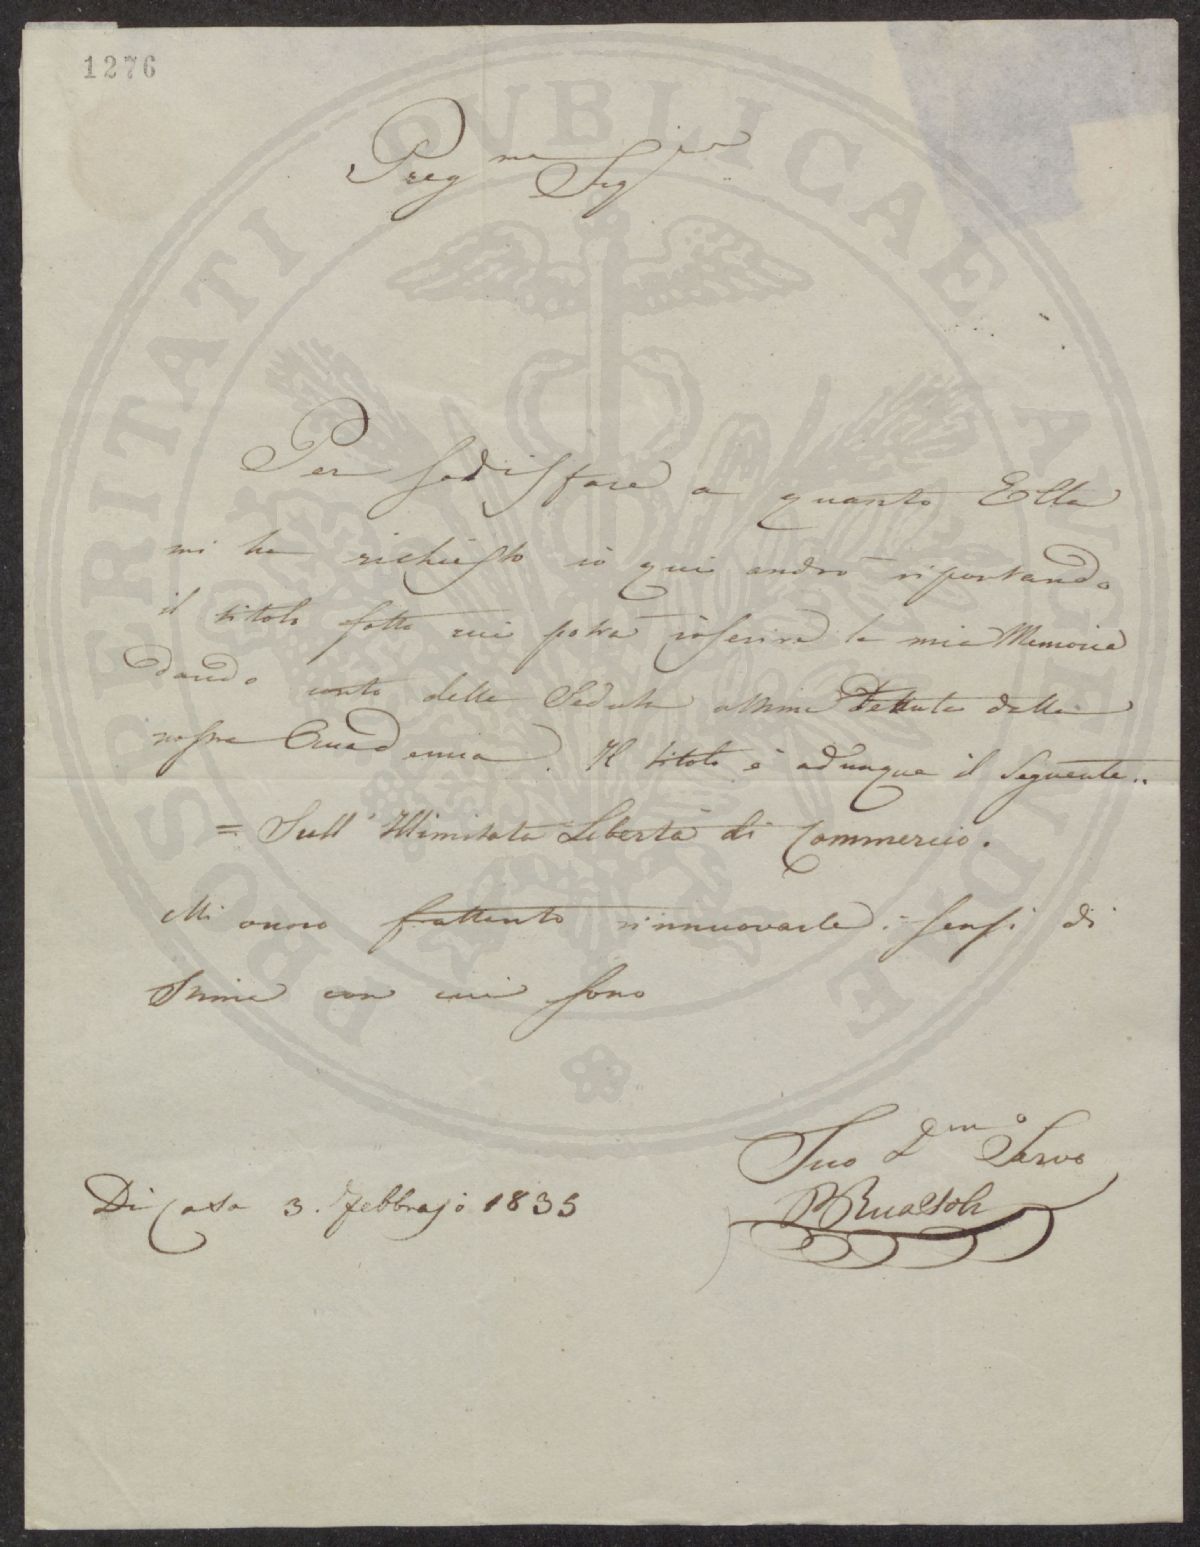 1276
PROSPERITATI PUBLICAE AUGENDAE
Preg.me Sig.re
Per sodisfare a quanto Ella
mi ha richiesto io qui andrò riportando
il titolo sotto cui potrà inserire la mia Memoria
dando conto della Seduta ultima tenuta dalla
nostra Accademia. Il titolo è adunque il seguente..
= Sull' Illimitata Libertà di Commercio.
Mi onoro frattanto rinnuovarle i sensi di
stima con cui sono
Suo D.mo Servo
Di Casa 3. Febbrajo 1835